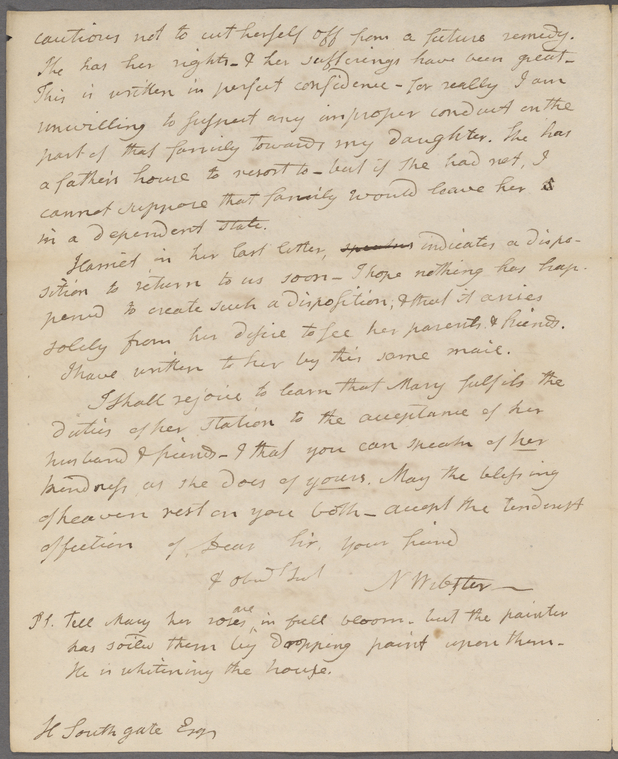 cautious not to cut herself off from a future remedy.
She has her rights - & her sufferings have been great -
This is written in perfect confidence - for really I am
unwilling to suspect any improper conduct on the
part of that family towards my daughter. She has
a fathers house to resort to - but if she had not, I
cannot suppose that family would leave her
in a dependent state.
Harriet in her last letter, indicates a dispo-
sition to return to us soon - I hope nothing has hap-
pened to create such a disposition, & that it arises
solely from her desire to see her parents & friends.
I have written to her by this same mail.
I shall rejoice to learn that Mary fulfils the
duties of her station to the acceptance of her
husband & friends - & that you can speak of her
kindness as she does of yours. May the blessing
of heaven rest on you both - accept the tenderest
affection of, Dear Sir, your friend
& obed Sert N Webster
P.S. Tell Mary her roses are in full bloom - but the painter
has soiled them by dropping paint upon them -
He is whitening the house.
H Southgate Esqr